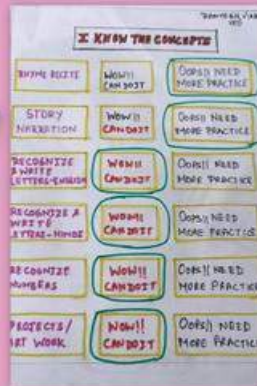 I KNOW THE CONCEPTS
RHYME RECITE
WOW!!
CAN DO IT
OOPS!! NEED
MORE PRACTICE
STORY
NARRATION
WOW!!
CAN DO IT
OOPS!! NEED
MORE PRACTICE
RECOGNIZE
& WRITE
LETTERS-ENGLISH
WOW!!
CAN DO IT
OOPS!! NEED
MORE PRACTICE
RECOGNIZE &
WRITE
LETTERS-HINDI
WOW!!
CAN DO IT
OOPS!! NEED
MORE PRACTICE
RECOGNIZE
NUMBERS
WOW!!
CAN DO IT
OOPS!! NEED
MORE PRACTICE
PROJECTS/
ART WORK
WOW!!
CAN DO IT
OOPS!! NEED
MORE PRACTICE